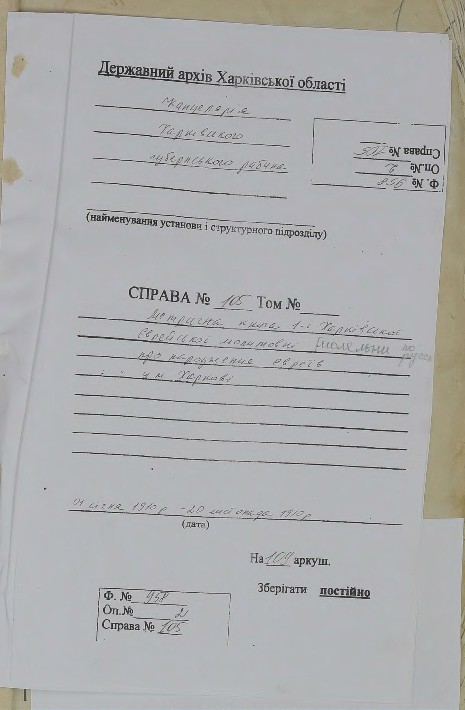 Державний архів Харківської області
Канцелярія
Харківского
губернського рабина
Справа №
Оп.№ 2
Ф. №
(найменування установи і структурного підрозділу)
СПРАВА № 105 Том №
Метрична книга 1-ї Харківської
Єврейської молитовні (молельни по
про народження євреїв
у м. Харкові
01 січня 1910 р - 20 листопада 1910 р
(дата)
На 104 аркуш.
Зберігати постійно
Ф. № 958
Оп.№ 2
Справа № 105